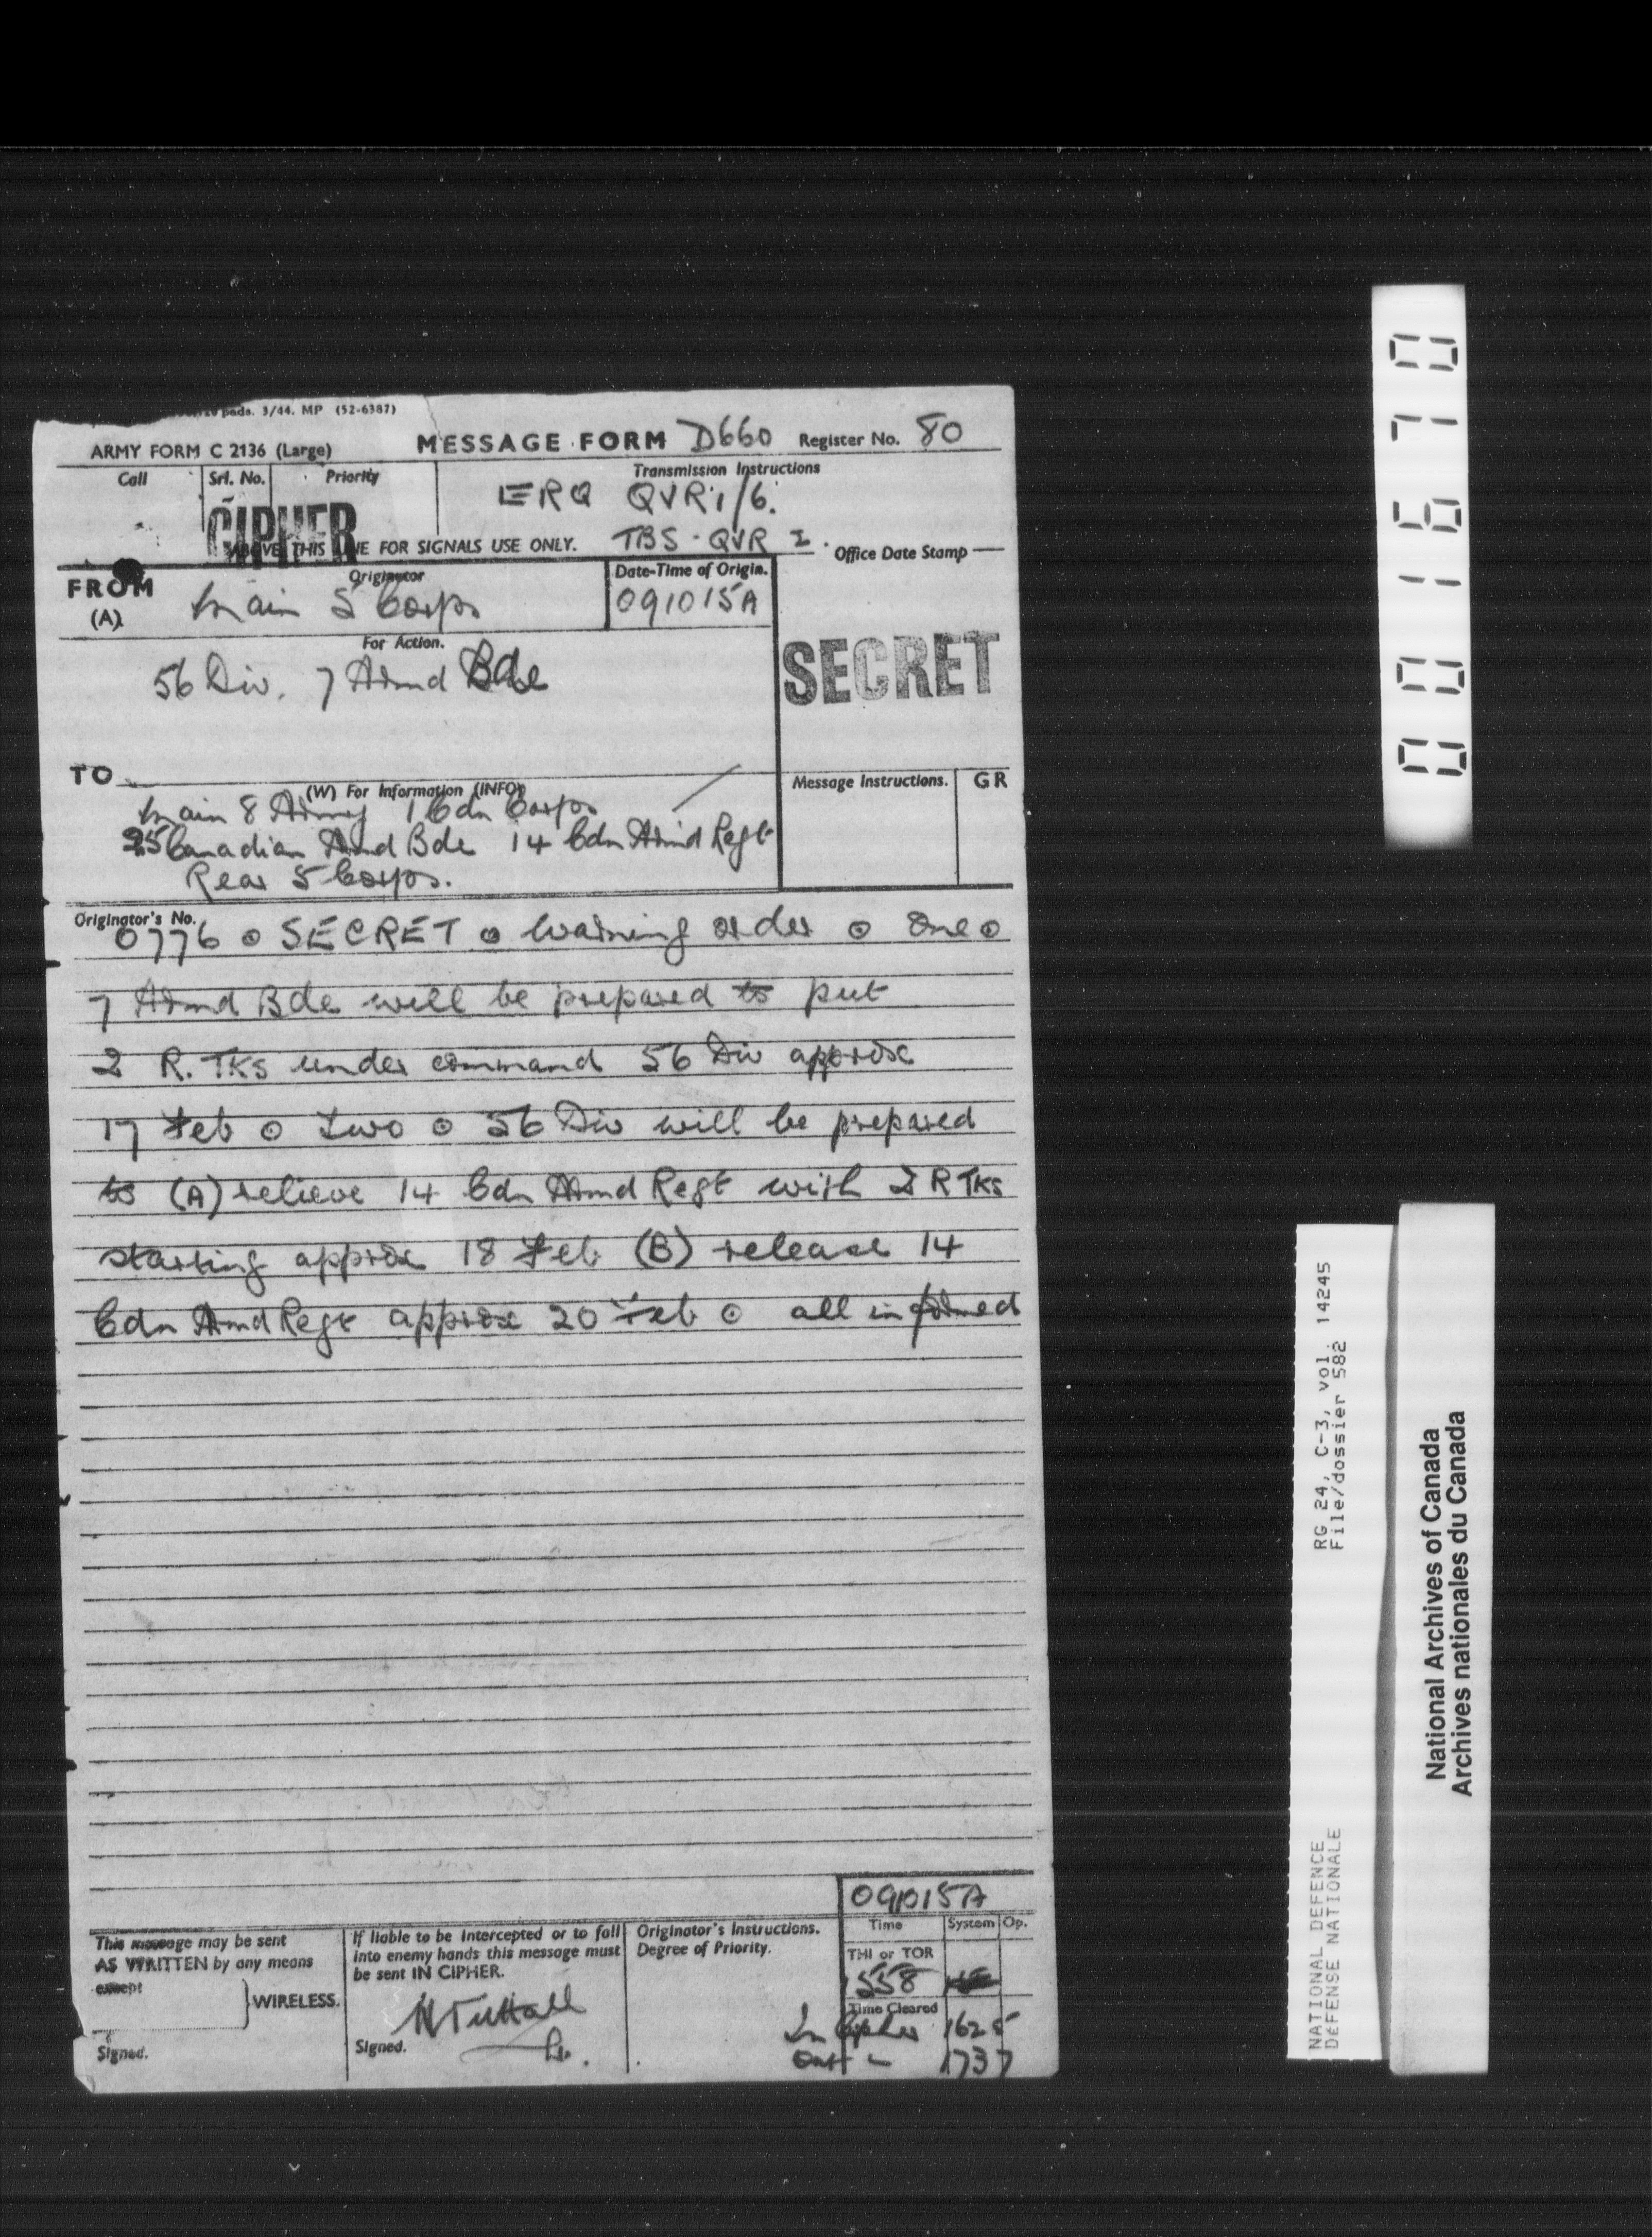 pads. 3/44. MP (52-6387)
ARMY FORM C 2136 (Large) MESSAGE FORM D660 Register No. 80
Call Srl. No. Priority Transmission Instructions
CIPHER ERQ QVR1/6.
ABOVE THIS LINE FOR SIGNALS USE ONLY. TBS · QVR 2. Office Date Stamp
FROM (A) Originator Date-Time of Origin.
Main 5 Corps 091015A
For Action.
56 Div. 7 Armd Bde
SECRET
TO
(W) For Information (INFO) Message Instructions. GR
Main 8 Army 1 Cdn Corps
25 Canadian Armd Bde 14 Cdn Armd Regt
Rear 5 Corps.
Originator's No.
0776 ⊙ SECRET ⊙ Warning order ⊙ One ⊙
7 Armd Bde will be prepared to put
2 R. TKS under command 56 Div approx
17 Feb ⊙ Two ⊙ 56 Div will be prepared
to (A) relieve 14 Cdn Armd Regt with 2 R TKS
starting approx 18 Feb (B) release 14
Cdn Armd Regt approx 20 Feb ⊙ all informed
091015A
This message may be sent AS WRITTEN by any means except WIRELESS.
Signed.
If liable to be intercepted or to fall into enemy hands this message must be sent IN CIPHER.
Signed.
Originator's Instructions. Degree of Priority.
Time System Op.
THI or TOR
1558
Time Cleared
In Cipher 1625
Out 1737
001670
RG 24, C-3, vol. 14245
File/dossier 582
NATIONAL DEFENCE
DÉFENSE NATIONALE
National Archives of Canada
Archives nationales du Canada